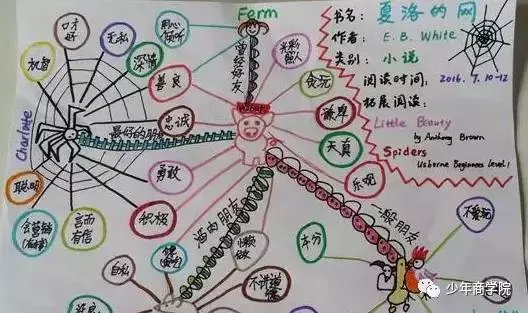 Ferm
书名: 夏洛的网
作者: E. B. White
类别: 小说
阅读时间: 2016. 7. 10-12
拓展阅读:
Little Beauty
by Anthony Brown
Spiders
Usborne Beginners Level 1
口才好
无私
深情
机智
Charlotte
聪明
会营销
言而有信
积极
勇敢
忠诚
善良
用心倾听
曾经好友
光彩照人
贪玩
谦卑
天真
乐观
最好的朋
酒肉朋友
一般朋友
自私
懒做
不讲道德
本分
不爱玩
少年商学院